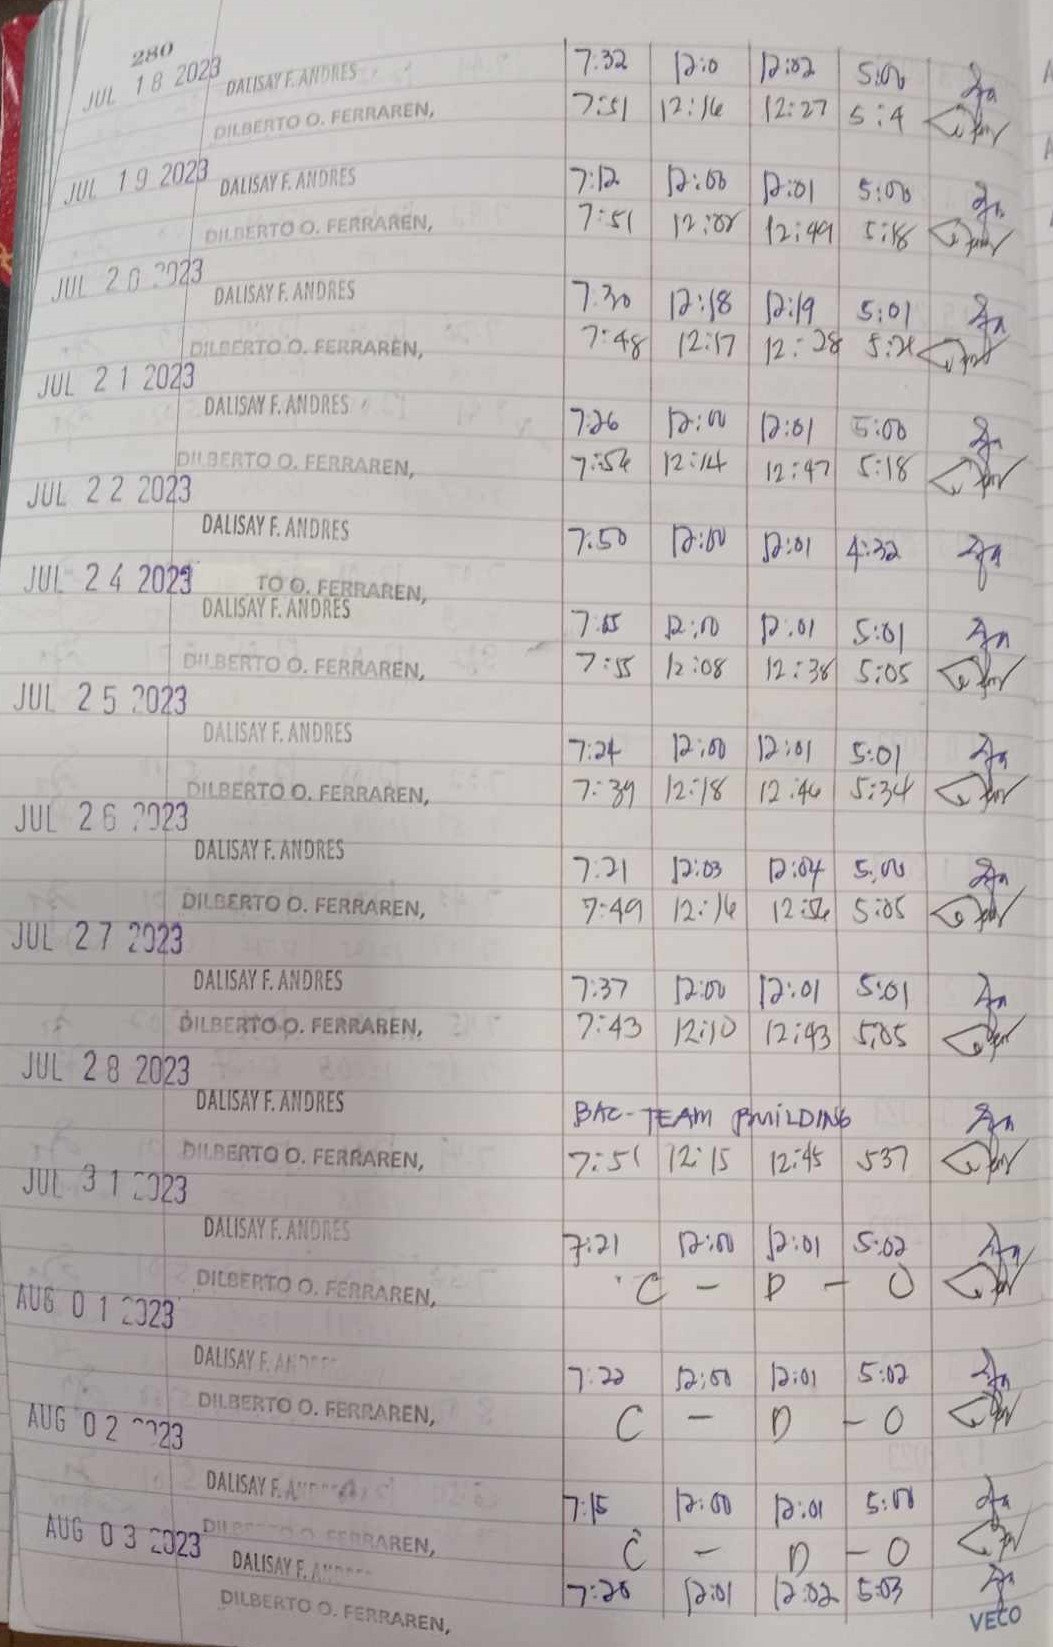 280
JUL 18 2023 DALISAY F. ANDRES 7:32 12:0 12:02 5:00
DILBERTO O. FERRAREN, 7:51 12:16 12:27 5:4
JUL 19 2023 DALISAY F. ANDRES 7:12 12:00 12:01 5:00
DILBERTO O. FERRAREN, 7:51 12:08 12:49 5:18
JUL 20 2023
DALISAY F. ANDRES 7:30 12:18 12:19 5:01
DILBERTO O. FERRAREN, 7:48 12:17 12:28
JUL 21 2023
DALISAY F. ANDRES 7:26 12:00 12:01 5:00
DILBERTO O. FERRAREN, 7:56 12:14 12:47 5:18
JUL 22 2023
DALISAY F. ANDRES 7:50 12:00 12:01 4:32
JUL 24 2023 TO O. FERRAREN,
DALISAY F. ANDRES 12:00 12:01 5:01
DILBERTO O. FERRAREN, 7:55 12:08 12:38 5:05
JUL 25 2023
DALISAY F. ANDRES 7:24 12:00 12:01 5:01
DILBERTO O. FERRAREN, 7:39 12:18 12:46 5:34
JUL 26 2023
DALISAY F. ANDRES 7:21 12:03 12:04 5:00
DILBERTO O. FERRAREN, 7:49 12:16 12:56 5:05
JUL 27 2023
DALISAY F. ANDRES 7:37 12:00 12:01 5:01
DILBERTO O. FERRAREN, 7:43 12:10 12:43 5:05
JUL 28 2023
DALISAY F. ANDRES BAC-TEAM BUILDING
DILBERTO O. FERRAREN, 7:51 12:15 12:45 537
JUL 31 2023
DALISAY F. ANDRES 7:21 12:00 12:01 5:02
DILBERTO O. FERRAREN, C - D - O
AUG 01 2023
DALISAY F. ANDRES 7:22 12:00 12:01 5:02
DILBERTO O. FERRAREN, C - D - O
AUG 02 2023
DALISAY F. ANDRES 7:15 12:00 12:01 5:00
DILBERTO O. FERRAREN, C - D - O
AUG 03 2023 DALISAY F. ANDRES 7:20 12:01 12:02 5:03
DILBERTO O. FERRAREN, VECO